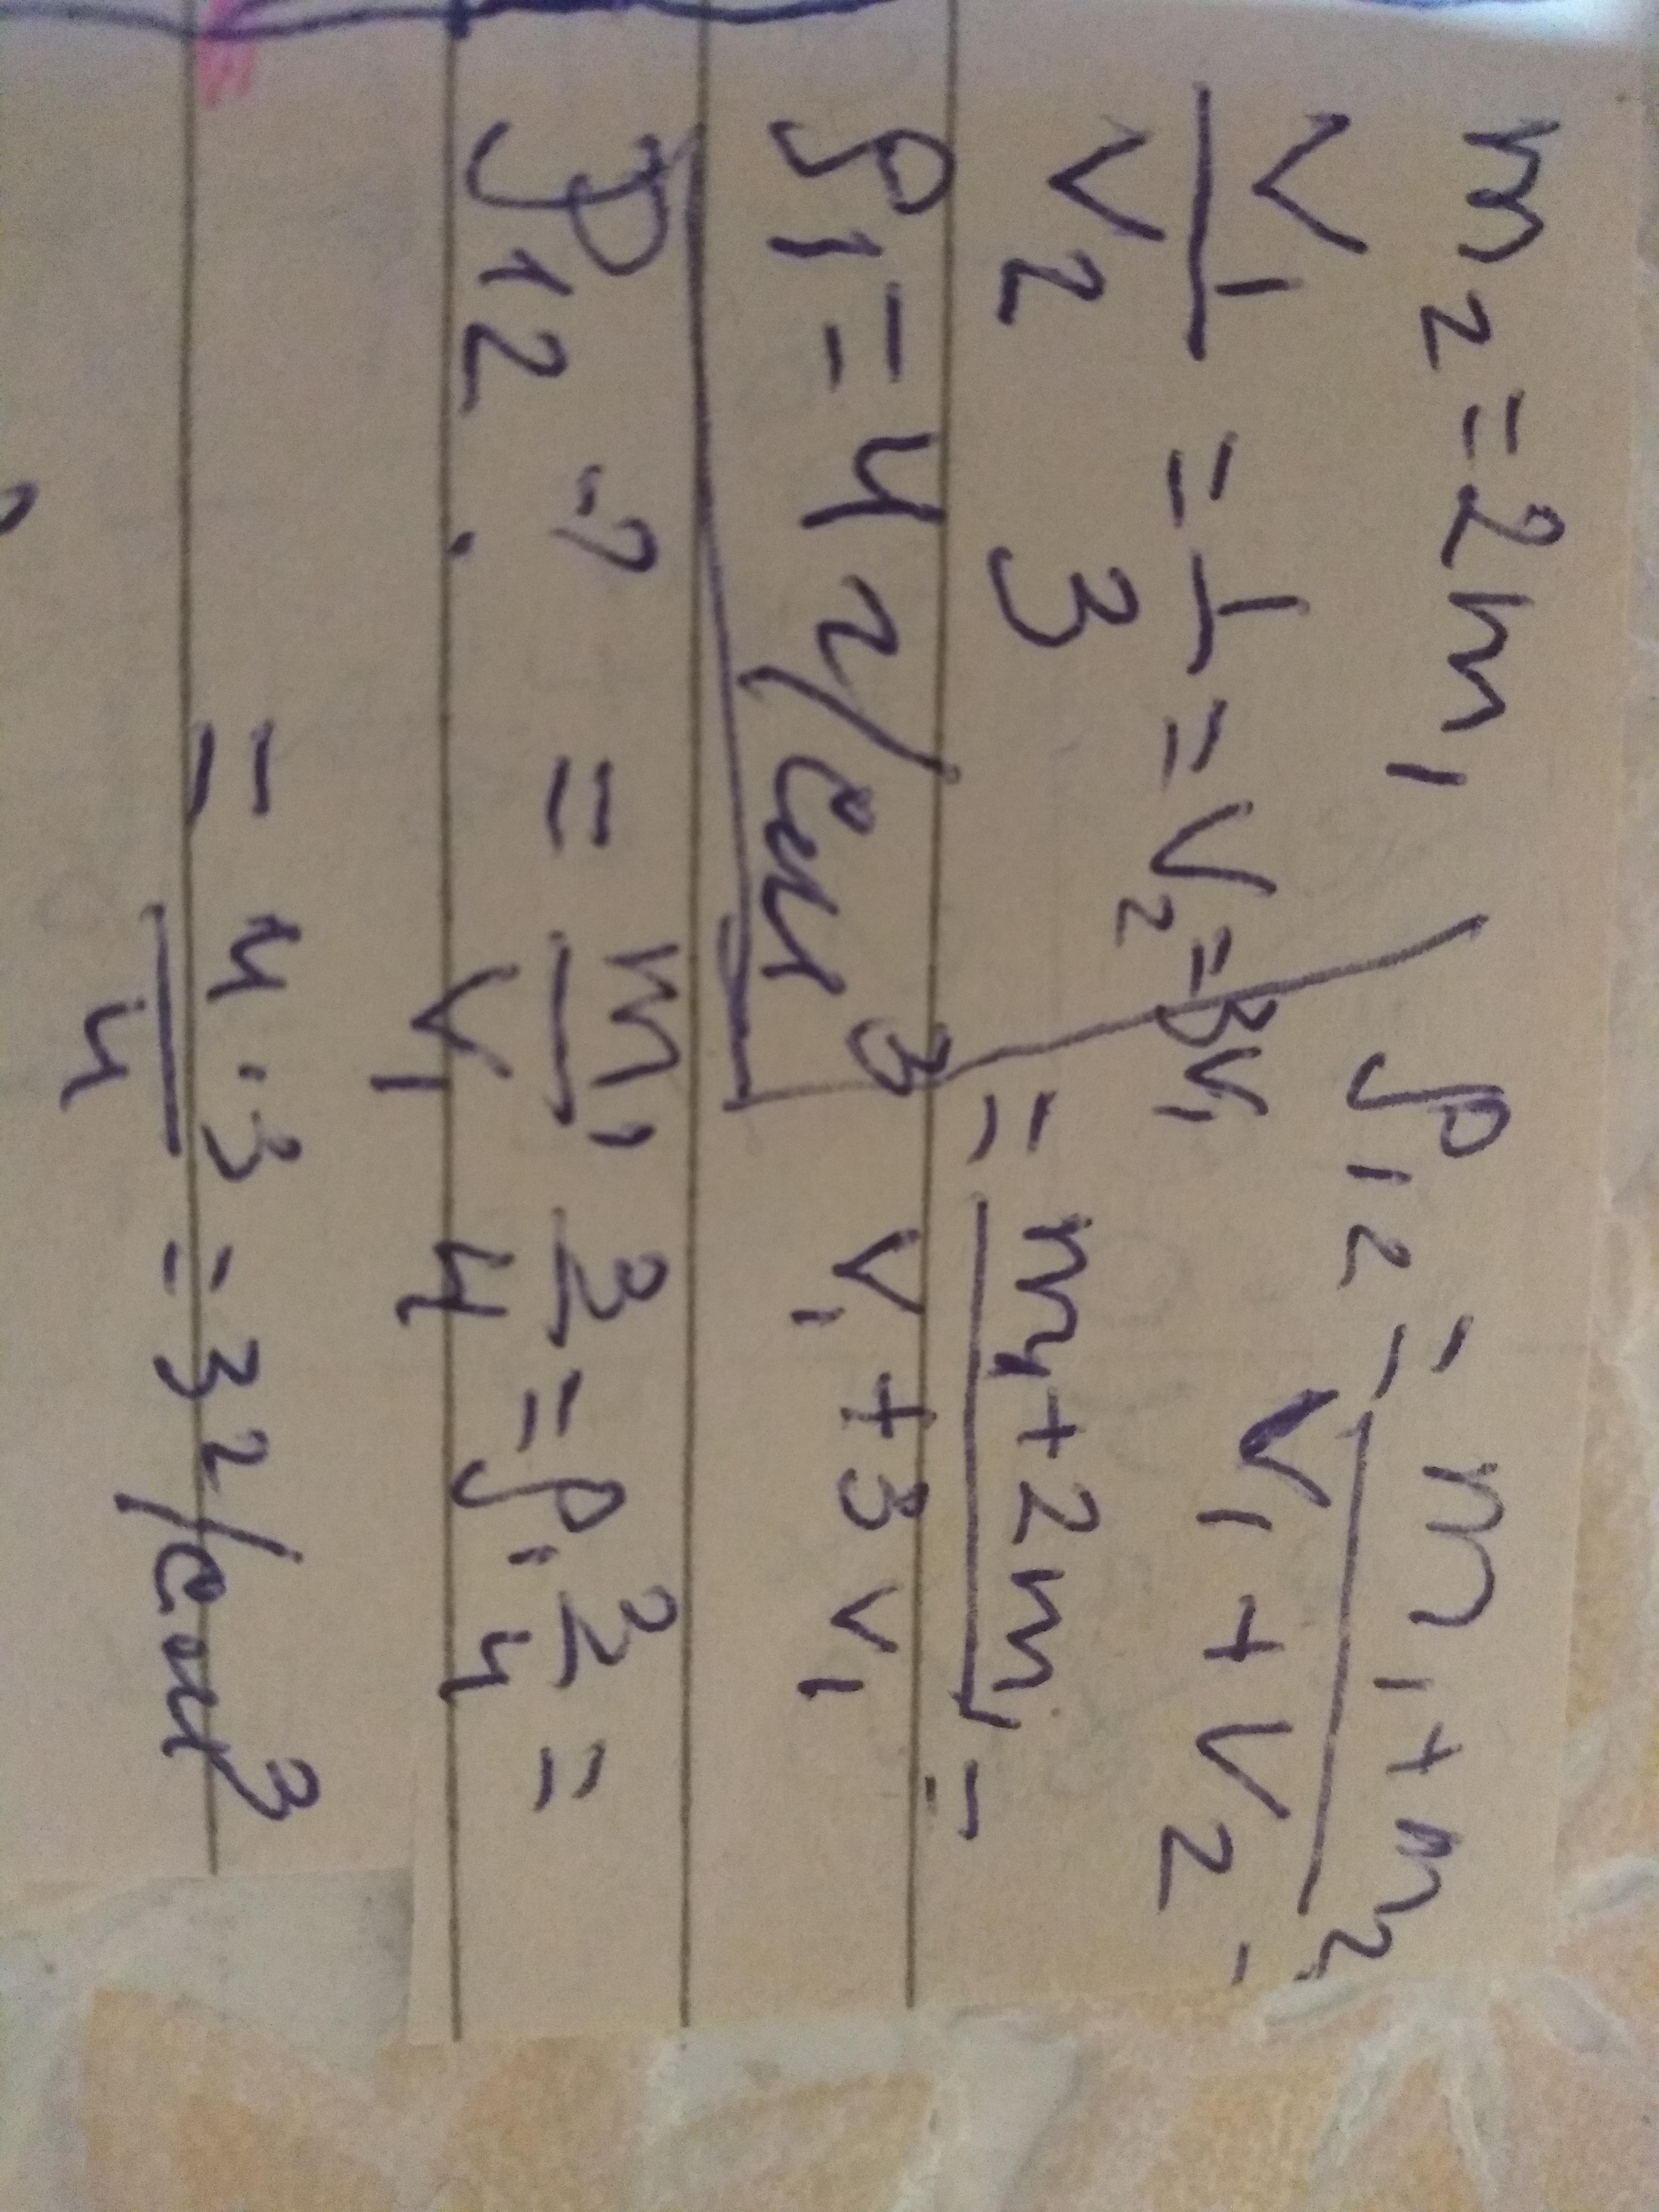 m₂ = 2m₁
V₁/V₂ = 1/3 = V₂ = 3V₁
ρ₁ = 4 г/см³
ρ₁₂ - ?
ρ₁₂ = (m₁ + m₂)/(V₁ + V₂) =
= (m₁ + 2m₁)/(V₁ + 3V₁) =
= m₁/V₁ 3/4 = ρ₁ 3/4 =
= 4·3/4 = 3 г/см³